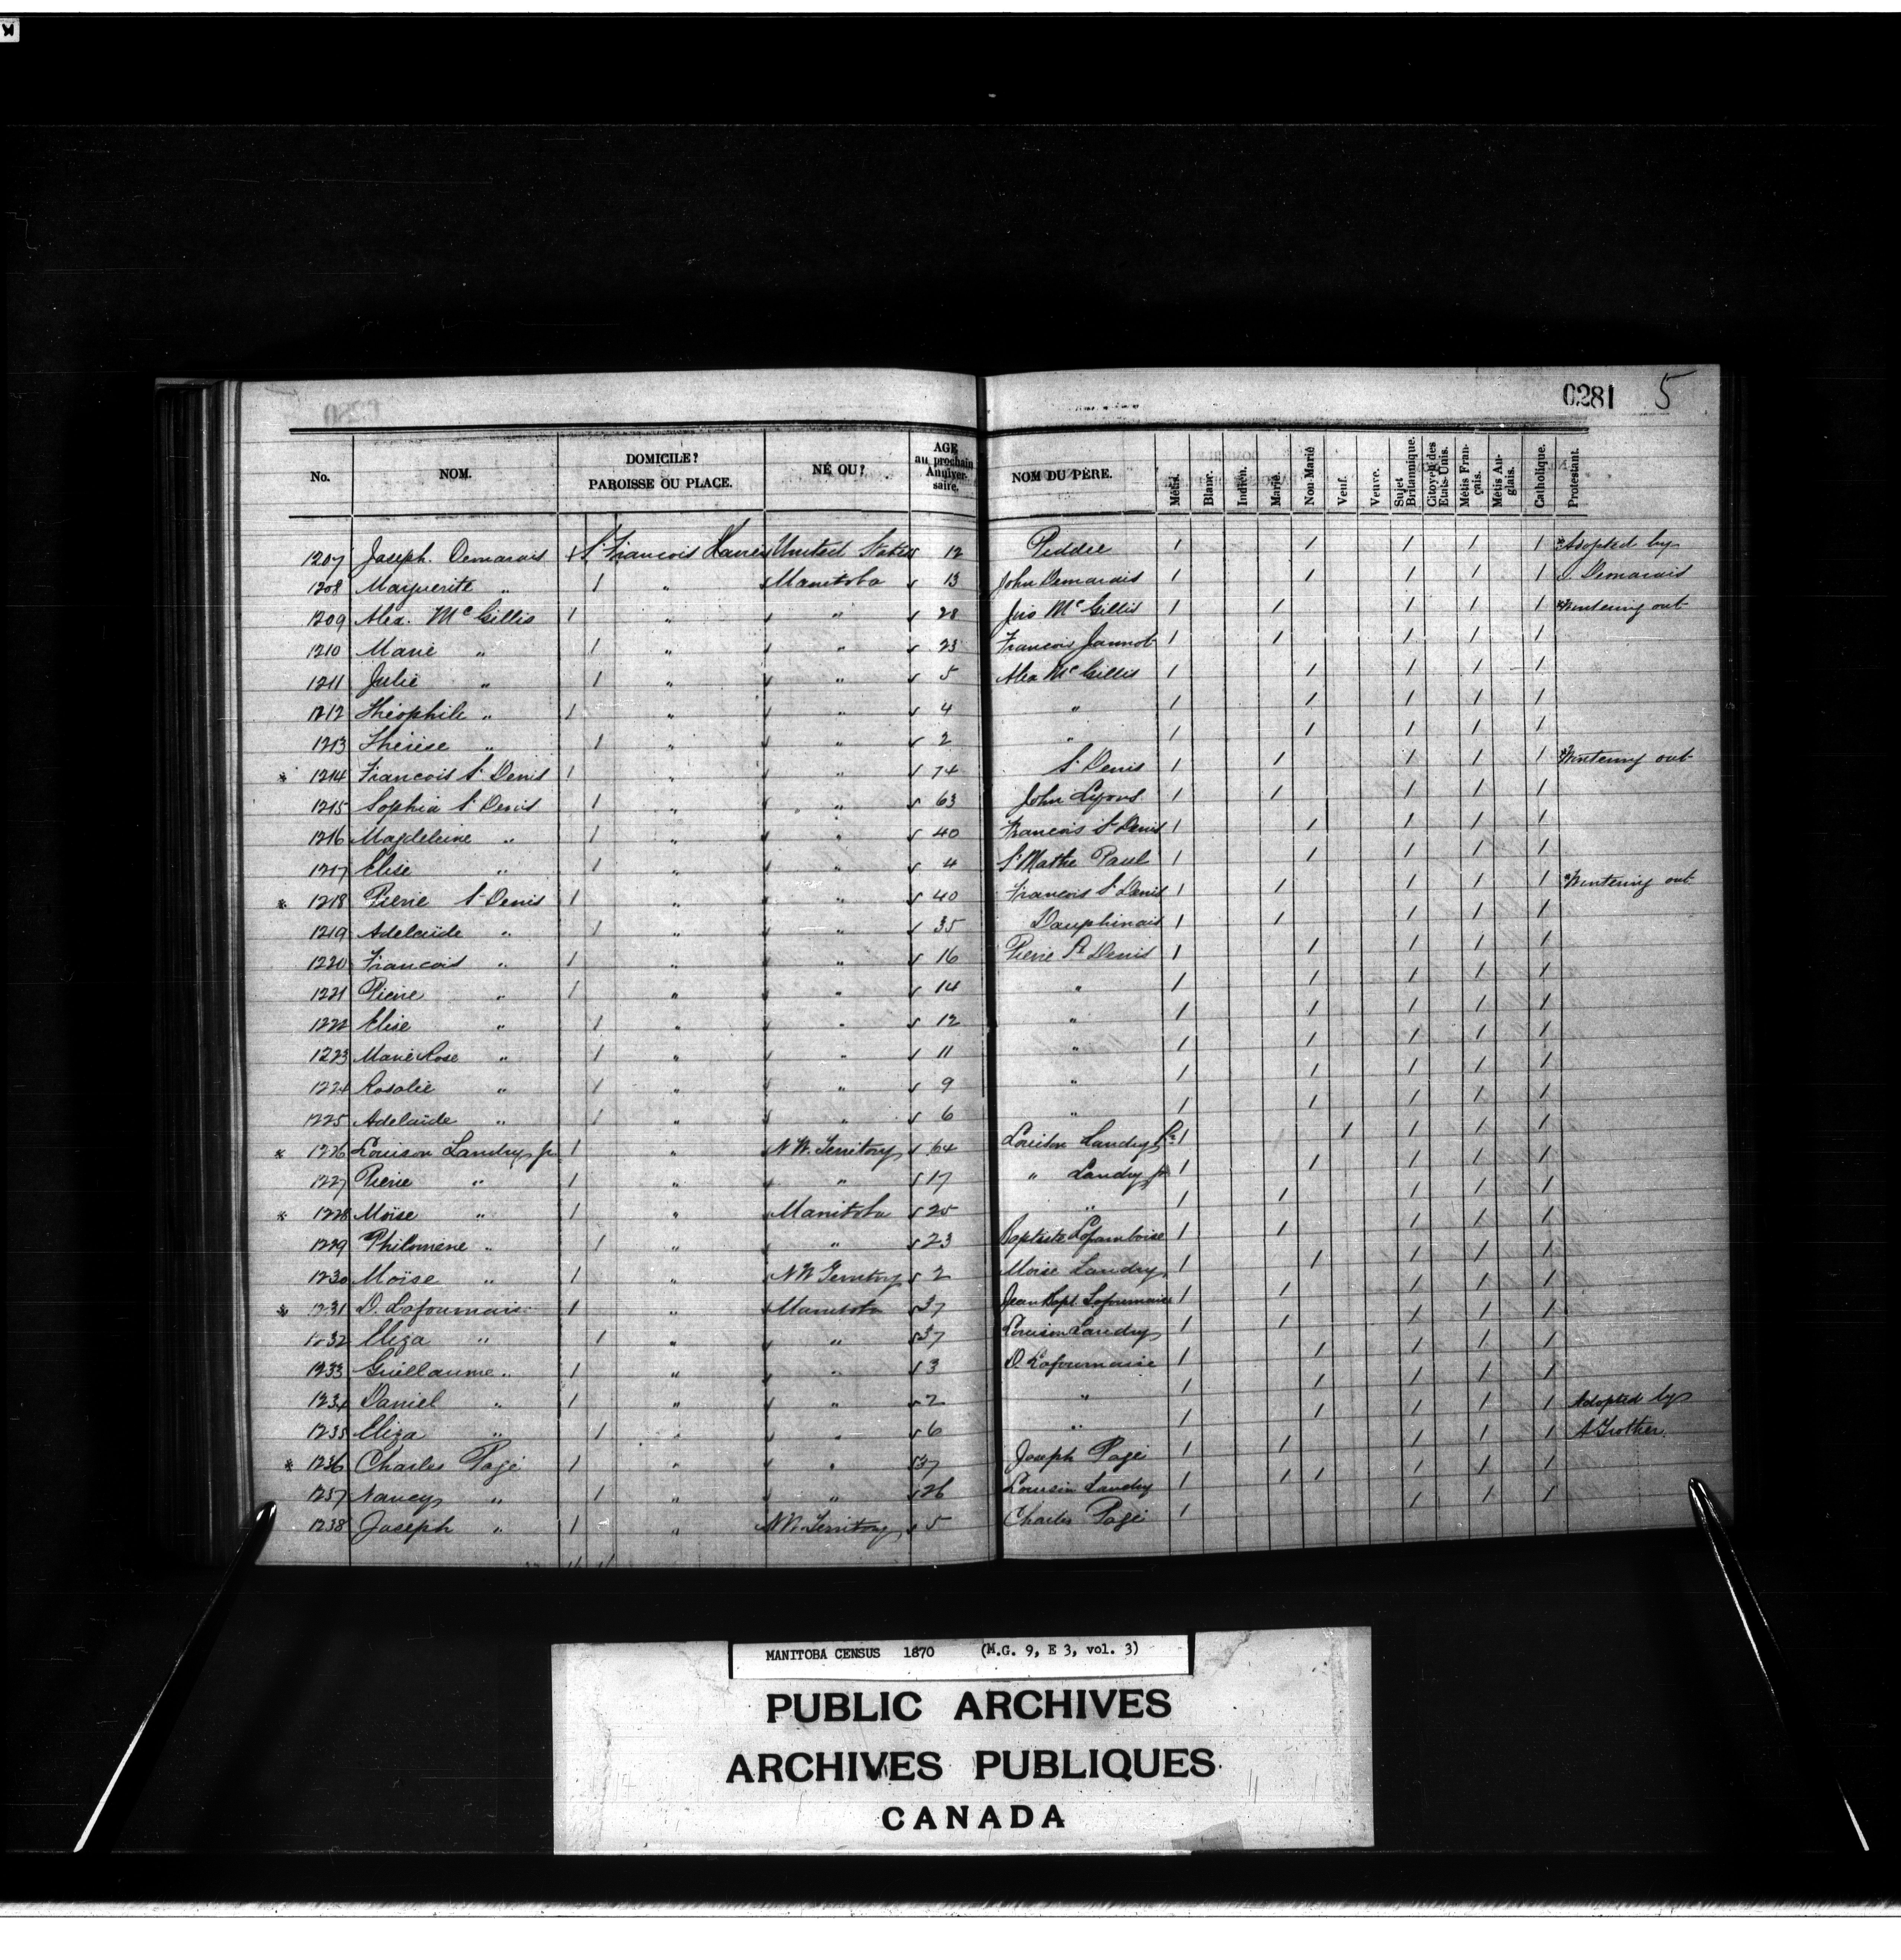 0281 5
No. NOM. DOMICILE? PAROISSE OU PLACE. NÉ OU? AGE au prochain Anniversaire. NOM DU PÈRE. Métis. Blanc. Indien. Marié. Non-Marié Veuf. Veuve. Sujet Britannique. Citoyen des Etats-Unis. Métis Français. Métis Anglais. Catholique. Protestant.
1207 Joseph Demarais 1 St Francois Xavier United States 12 Peddie 1 1 1 1 1 *Adopted by
1208 Marguerite " 1 " Manitoba 13 John Demarais 1 1 1 1 1 J. Demarais
1209 Alex. McGillis 1 " " 28 McGillis 1 1 1 1 1 *Wintering out
1210 Marie " 1 " " 23 Francois Jannot 1 1 1 1 1
1211 Julie " 1 " " 5 Alex McGillis 1 1 1 1 1
1212 Théophile " 1 " " 4 " 1 1 1 1 1
1213 Thérèse " 1 " " 2 " 1 1 1 1 1
* 1214 Francois St Denis 1 " " 74 St Denis 1 1 1 1 1 *Wintering out
1215 Sophia St Denis 1 " " 63 John Lyons 1 1 1 1 1
1216 Magdeleine " 1 " " 40 Francois St Denis 1 1 1 1 1
1217 Elise " 1 " " 4 St Mathe Paul 1 1 1 1 1
* 1218 Pierre St Denis 1 " " 40 Francois St Denis 1 1 1 1 1 *Wintering out
1219 Adelaïde " 1 " " 35 Dauphinais 1 1 1 1 1
1220 Francois " 1 " " 16 Pierre St Denis 1 1 1 1 1
1221 Pierre " 1 " " 14 " 1 1 1 1 1
1222 Elise " 1 " " 12 " 1 1 1 1 1
1223 Marie Rose " 1 " " 11 " 1 1 1 1 1
1224 Rosalie " 1 " " 9 " 1 1 1 1 1
1225 Adelaïde " 1 " " 6 " 1 1 1 1 1
* 1226 Louison Landry jr 1 " N.W. Territory 64 Louison Landry Sr 1 1 1 1 1
1227 Pierre " 1 " " 17 " Landry jr 1 1 1 1 1
* 1228 Moïse " 1 " Manitoba 25 " 1 1 1 1 1
1229 Philomène " 1 " " 23 Baptiste Laframboise 1 1 1 1 1
1230 Moïse " 1 " N.W. Territory 2 Moïse Landry 1 1 1 1 1
* 1231 D. Lafournaise 1 " Manitoba 37 Jean Bapt. Lafournaise 1 1 1 1 1
1232 Eliza " 1 " " 37 Louison Landry 1 1 1 1 1
1233 Guillaume " 1 " " 3 D. Lafournaise 1 1 1 1 1
1234 Daniel " 1 " " 2 " 1 1 1 1 1 Adopted by
1235 Eliza " 1 " " 6 " 1 1 1 1 1 A Trottier
* 1236 Charles Pagé 1 " " 37 Joseph Pagé 1 1 1 1 1
1237 Nancy " 1 " " 26 Louison Landry 1 1 1 1 1
1238 Joseph " 1 " N.W. Territory 5 Charles Pagé 1 1 1 1 1
MANITOBA CENSUS 1870 (M.G. 9, E 3, vol. 3)
PUBLIC ARCHIVES
ARCHIVES PUBLIQUES
CANADA